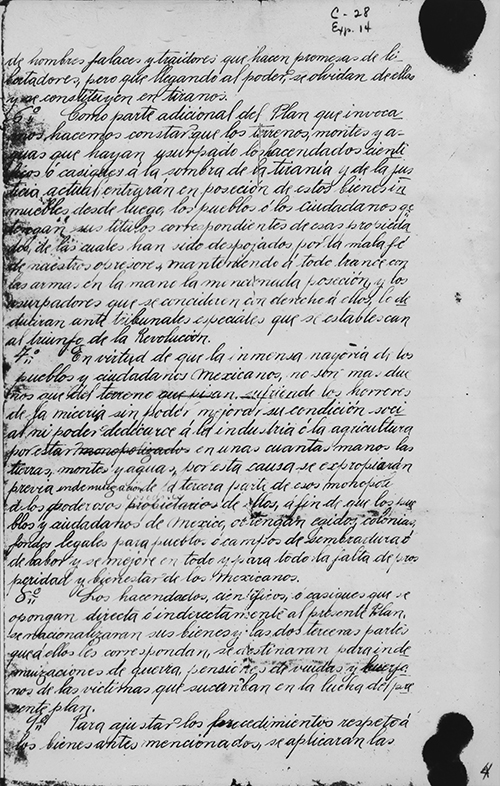 C - 28
Exp. 14
de hombres falaces y traidores que hacen promesas de li-
bertadores, pero que llegando al poder, se olvidan de ellas
y se constituyen en tiranos.
6o. Como parte adicional del Plan que invoca
mos, hacemos constar: que los terrenos, montes y a-
guas que hayan usurpado los hacendados, cientí
ficos ó caciques á la sombra de la tirania y de la jus
ticia actual entrarán en poseción de estos bienes in
muebles desde luego, los pueblos ó los ciudadanos que
tengan sus titulos correspondientes de esas propieda
des, de las cuales han sido despojados, por la mala fé
de nuestros opresores, manteniendo á todo trance con
las armas en la mano la mencionada poseción, y los
usurpadores que se concideren con derecho á ellos, lo de
ducirán ante tribunales especiales que se establescan
al triunfo de la Revolución.
7o. En virtud de que la inmensa mayoría de los
pueblos y ciudadanos Mexicanos, no son mas due
ños que del terreno que pisan, sufriendo los horrores
de la miseria sin poder mejorar su condición soci
al ni poder dedicarce á la industria ó la agricultura
por estar monopolizados en unas cuantas manos las
tierras, montes y aguas, por esta causa se expropiarán
previa indemnización de la tercera parte de esos monopol
á los poderosos propietarios de ellos, á fin de que los pue
blos y ciudadanos de México, obtengan egidos, colonias,
fondos legales para pueblos ó campos de sembradura ó
de labor y se mejore en todo y para todo la falta de pros
peridad y bienestar de los Mexicanos.
8o. Los hacendados, cientificos, ó casiques que se
opongan directa ó indirectamente al presente Plan,
se nacionalizaran sus bienes y las dos terceras partes
que á ellos les correspondan, se destinaran para inde
mnizaciones de guerra, pensiones de viudas y huerfa
nos de las victimas que sucumban en la lucha del pre
sente plan.
9o. Para ajustar los procedimientos respeto á
los bienes antes mencionados, se aplicaran las
4